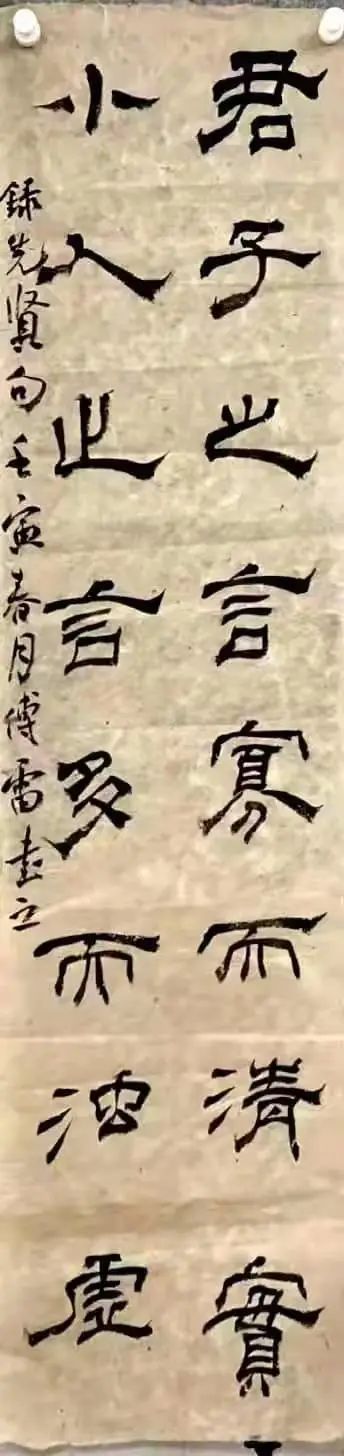 君子之言寡而清實
小人之言多而浊虛
録先贤句壬寅春月傅雷